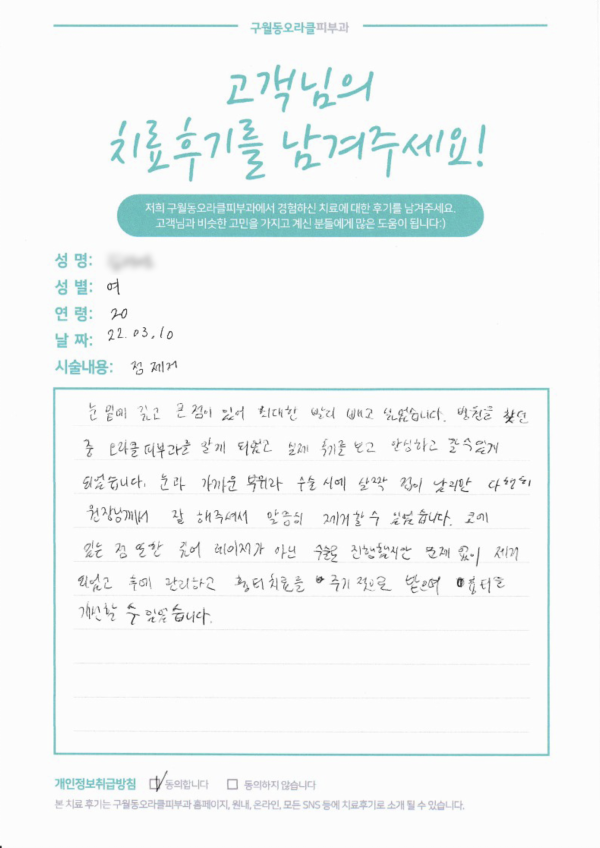 구월동오라클피부과
고객님의
치료후기를 남겨주세요!
저희 구월동오라클피부과에서 경험하신 치료에 대한 후기를 남겨주세요.
고객님과 비슷한 고민을 가지고 계신 분들에게 많은 도움이 됩니다:)
성 명:
성 별: 여
연 령: 20
날 짜: 22.03.10
시술내용: 점 제거
눈 밑에 깊고 큰 점이 있어 최대한 빨리 빼고 싶었습니다. 방법을 찾던
중 오라클 피부과를 알게 되었고 실제 후기를 보고 안심하고 올 수 있게
되었습니다. 눈과 가까운 부위라 수술 시에 살짝 겁이 났지만 다행히
원장님께서 잘 해주셔서 말끔히 제거할 수 있었습니다. 코에
있는 점 또한 깊어 레이저가 아닌 수술로 진행했지만 문제 없이 제거
되었고 후에 관리하고 흉터치료를 주기적으로 받으며 흉터도
개선할 수 있었습니다.
개인정보취급방침 동의합니다 동의하지 않습니다
본 치료 후기는 구월동오라클피부과 홈페이지, 원내, 온라인, 모든 SNS 등에 치료후기로 소개 될 수 있습니다.